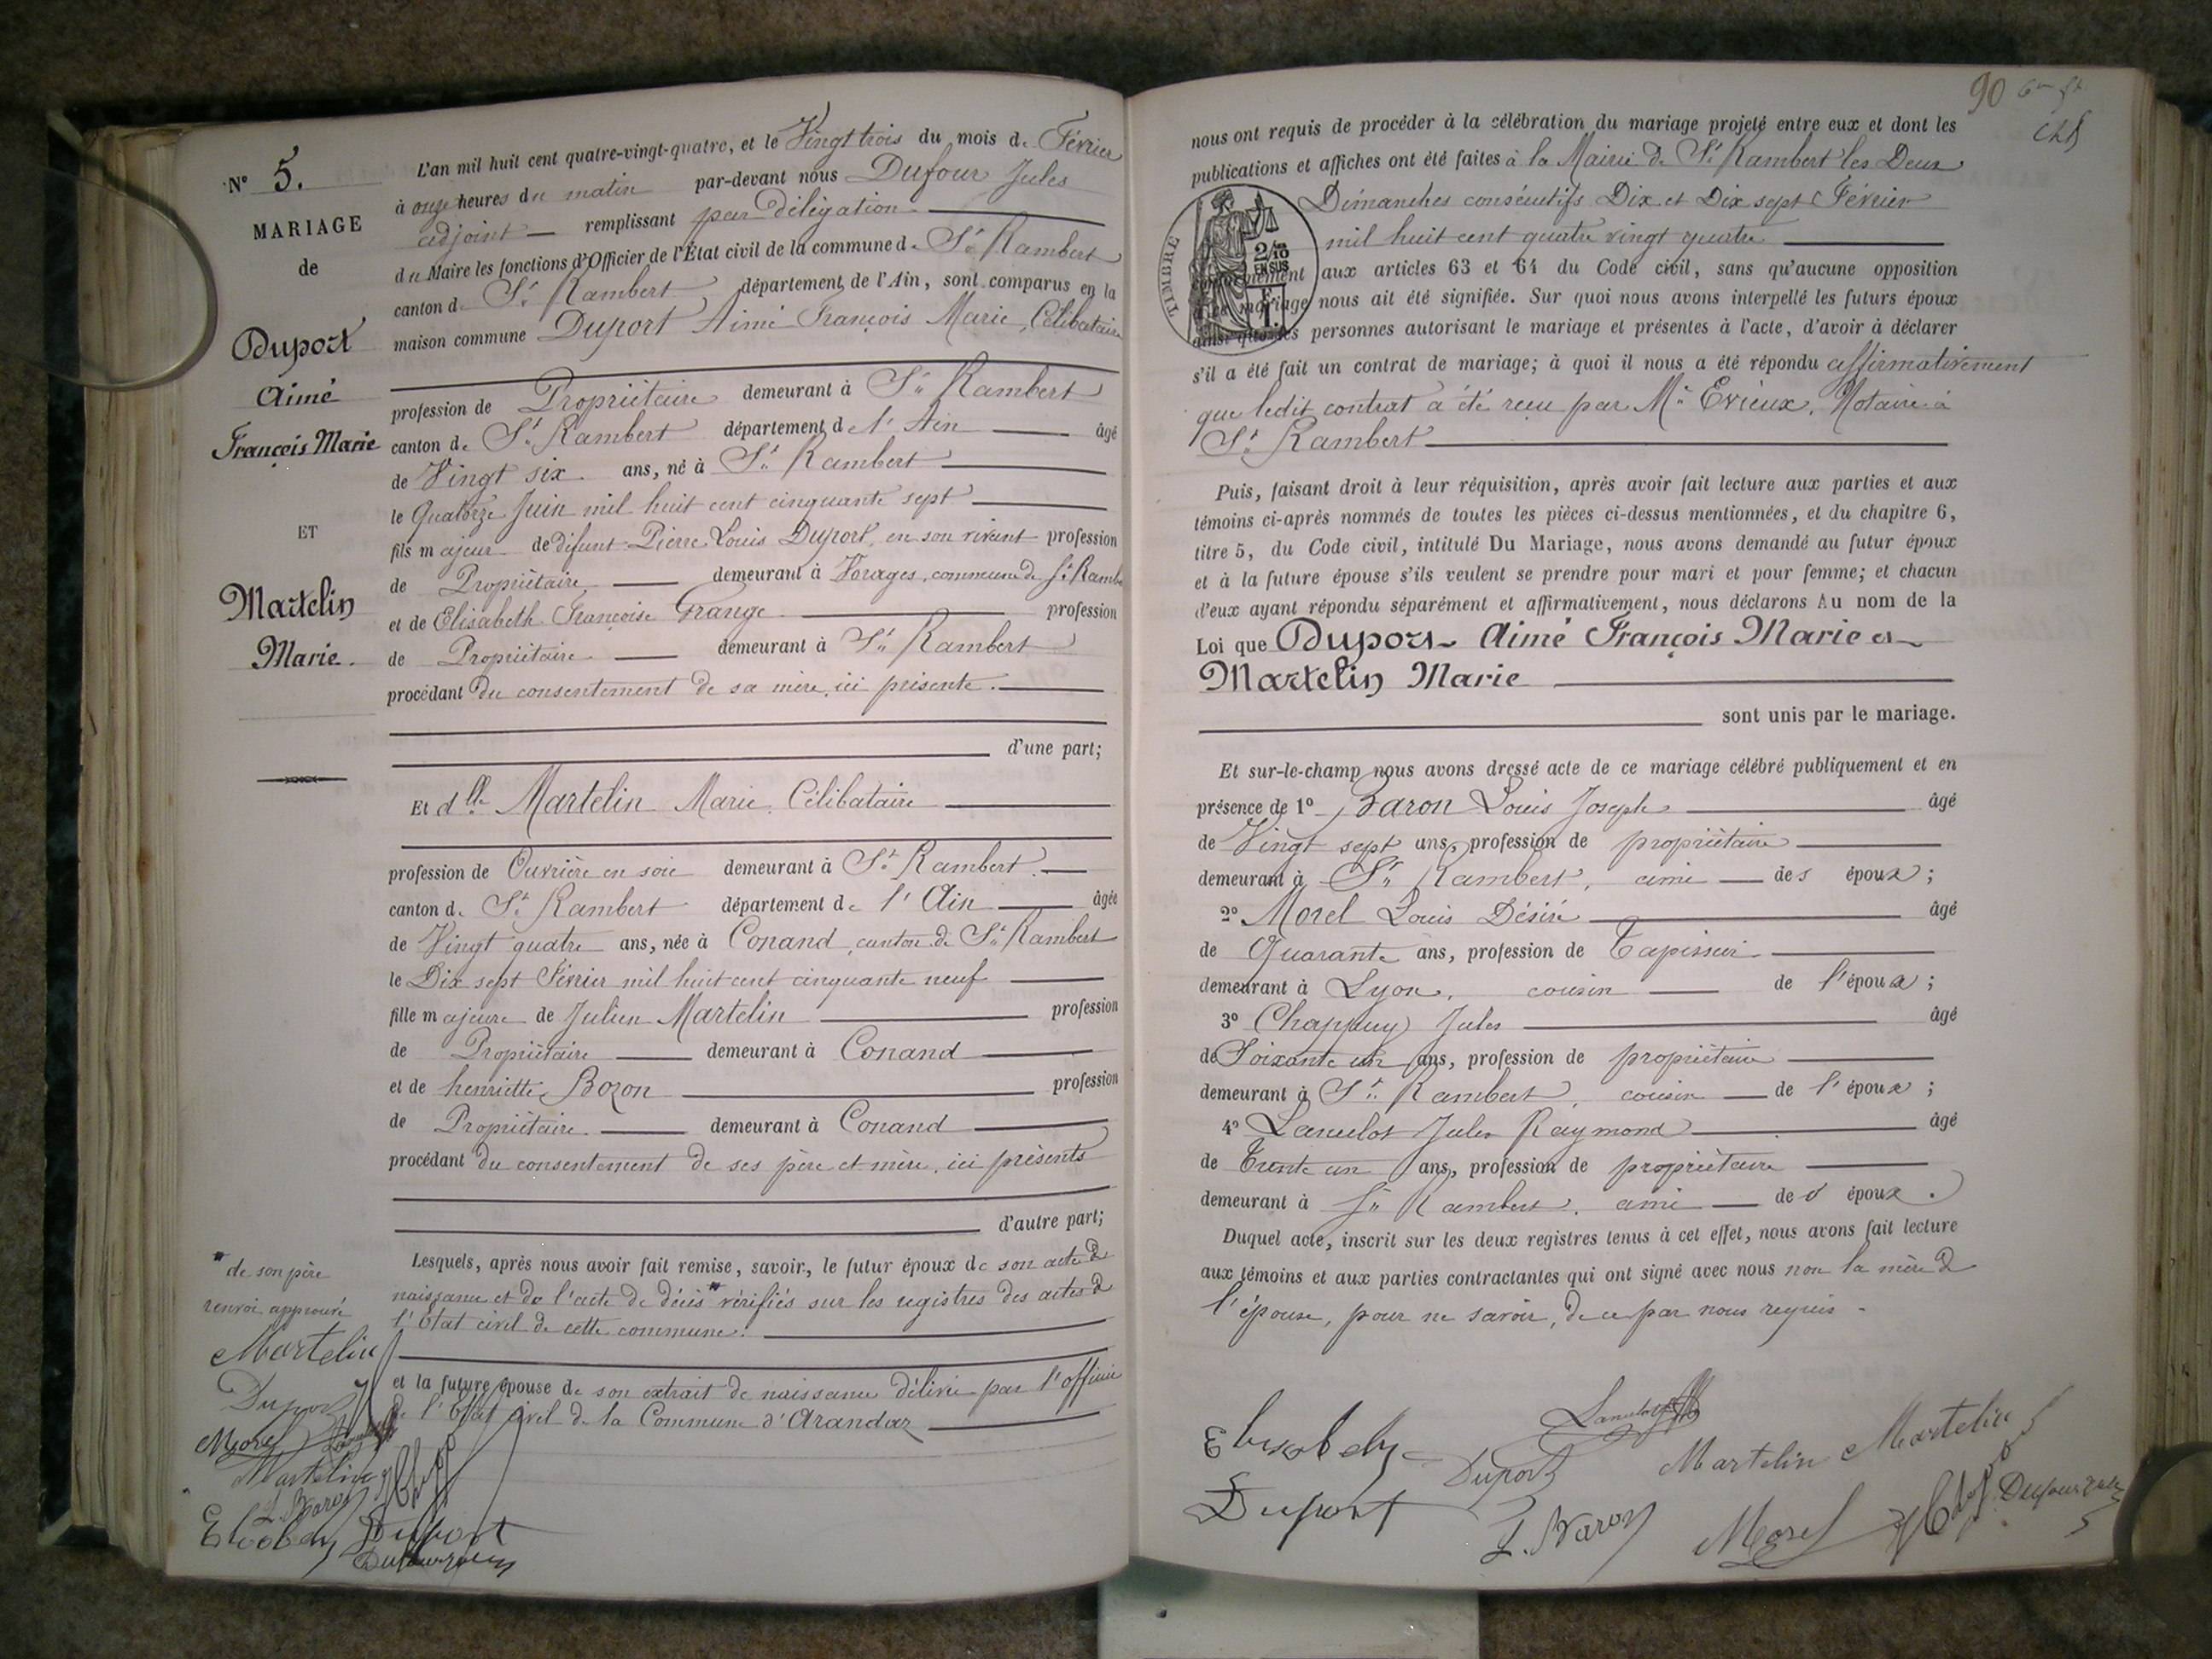 N° 5.
MARIAGE
de
Duport
Aimé
François Marie
ET
Martelin
Marie.
L'an mil huit cent quatre-vingt-quatre, et le Vingt trois du mois de Février
à onze heures du matin par-devant nous Dufour Jules
adjoint remplissant par délégation
du Maire les fonctions d'Officier de l'État civil de la commune de St Rambert
canton de St Rambert département de l'Ain, sont comparus en la
maison commune Duport Aimé François Marie, Célibataire
profession de Propriétaire demeurant à St Rambert
canton de St Rambert département de l'Ain âgé
de Vingt six ans, né à St Rambert
le Quatorze Juin mil huit cent cinquante sept
fils majeur de défunt Pierre Louis Duport, en son vivant profession
de Propriétaire demeurant à Vorages, commune de St Rambe
et de Elisabeth Françoise Grange profession
de Propriétaire demeurant à St Rambert
procédant du consentement de sa mère, ici présente.
d'une part;
Et dlle Martelin Marie, Célibataire
profession de Ouvrière en soie demeurant à St Rambert
canton de St Rambert département de l'Ain âgée
de Vingt quatre ans, née à Conand, canton de St Rambert
le Dix sept Février mil huit cent cinquante neuf
fille majeure de Julien Martelin profession
de Propriétaire demeurant à Conand
et de henriette Bozon profession
de Propriétaire demeurant à Conand
procédant du consentement de ses père et mère, ici présents
d'autre part;
Lesquels, après nous avoir fait remise, savoir, le futur époux de son acte de
naissance et de l'acte de décès vérifiés sur les registres des actes de
l'État civil de cette commune.
et la future épouse de son extrait de naissance délivré par l'officier
de l'État civil de la Commune d'Arandas
de son père
renvoi approuvé
Martelin
Duport
Morel
Martelin
L. Baron
Duport
90
nous ont requis de procéder à la célébration du mariage projeté entre eux et dont les
publications et affiches ont été faites à la Mairie de St Rambert les Deux
Dimanches consécutifs Dix et Dix sept Février
mil huit cent quatre vingt quatre
TIMBRE
2/10
EN SUS
conformément aux articles 63 et 64 du Code civil, sans qu'aucune opposition
à ce mariage nous ait été signifiée. Sur quoi nous avons interpellé les futurs époux
ainsi que les personnes autorisant le mariage et présentes à l'acte, d'avoir à déclarer
s'il a été fait un contrat de mariage; à quoi il nous a été répondu affirmativement
que ledit contrat a été reçu par Me Evieux, Notaire à
St Rambert
Puis, faisant droit à leur réquisition, après avoir fait lecture aux parties et aux
témoins ci-après nommés de toutes les pièces ci-dessus mentionnées, et du chapitre 6,
titre 5, du Code civil, intitulé Du Mariage, nous avons demandé au futur époux
et à la future épouse s'ils veulent se prendre pour mari et pour femme; et chacun
d'eux ayant répondu séparément et affirmativement, nous déclarons Au nom de la
Loi que Duport Aimé François Marie et
Martelin Marie
sont unis par le mariage.
Et sur-le-champ nous avons dressé acte de ce mariage célébré publiquement et en
présence de 1° Baron Louis Joseph âgé
de Vingt sept ans, profession de propriétaire
demeurant à St Rambert, ami des époux;
2° Morel Louis Désiré âgé
de Quarante ans, profession de Tapissier
demeurant à Lyon, cousin de l'époux;
3° Chappuy Jules âgé
de Soixante un ans, profession de propriétaire
demeurant à St Rambert, cousin de l'époux;
4° Lancelot Jules Raymond âgé
de Trente un ans, profession de propriétaire
demeurant à St Rambert, ami des époux.
Duquel acte, inscrit sur les deux registres tenus à cet effet, nous avons fait lecture
aux témoins et aux parties contractantes qui ont signé avec nous non la mère de
l'épouse, pour ne savoir, de ce par nous requis.
Lancelot
Duport
Martelin Martelin
Duport
L. Baron
Morel